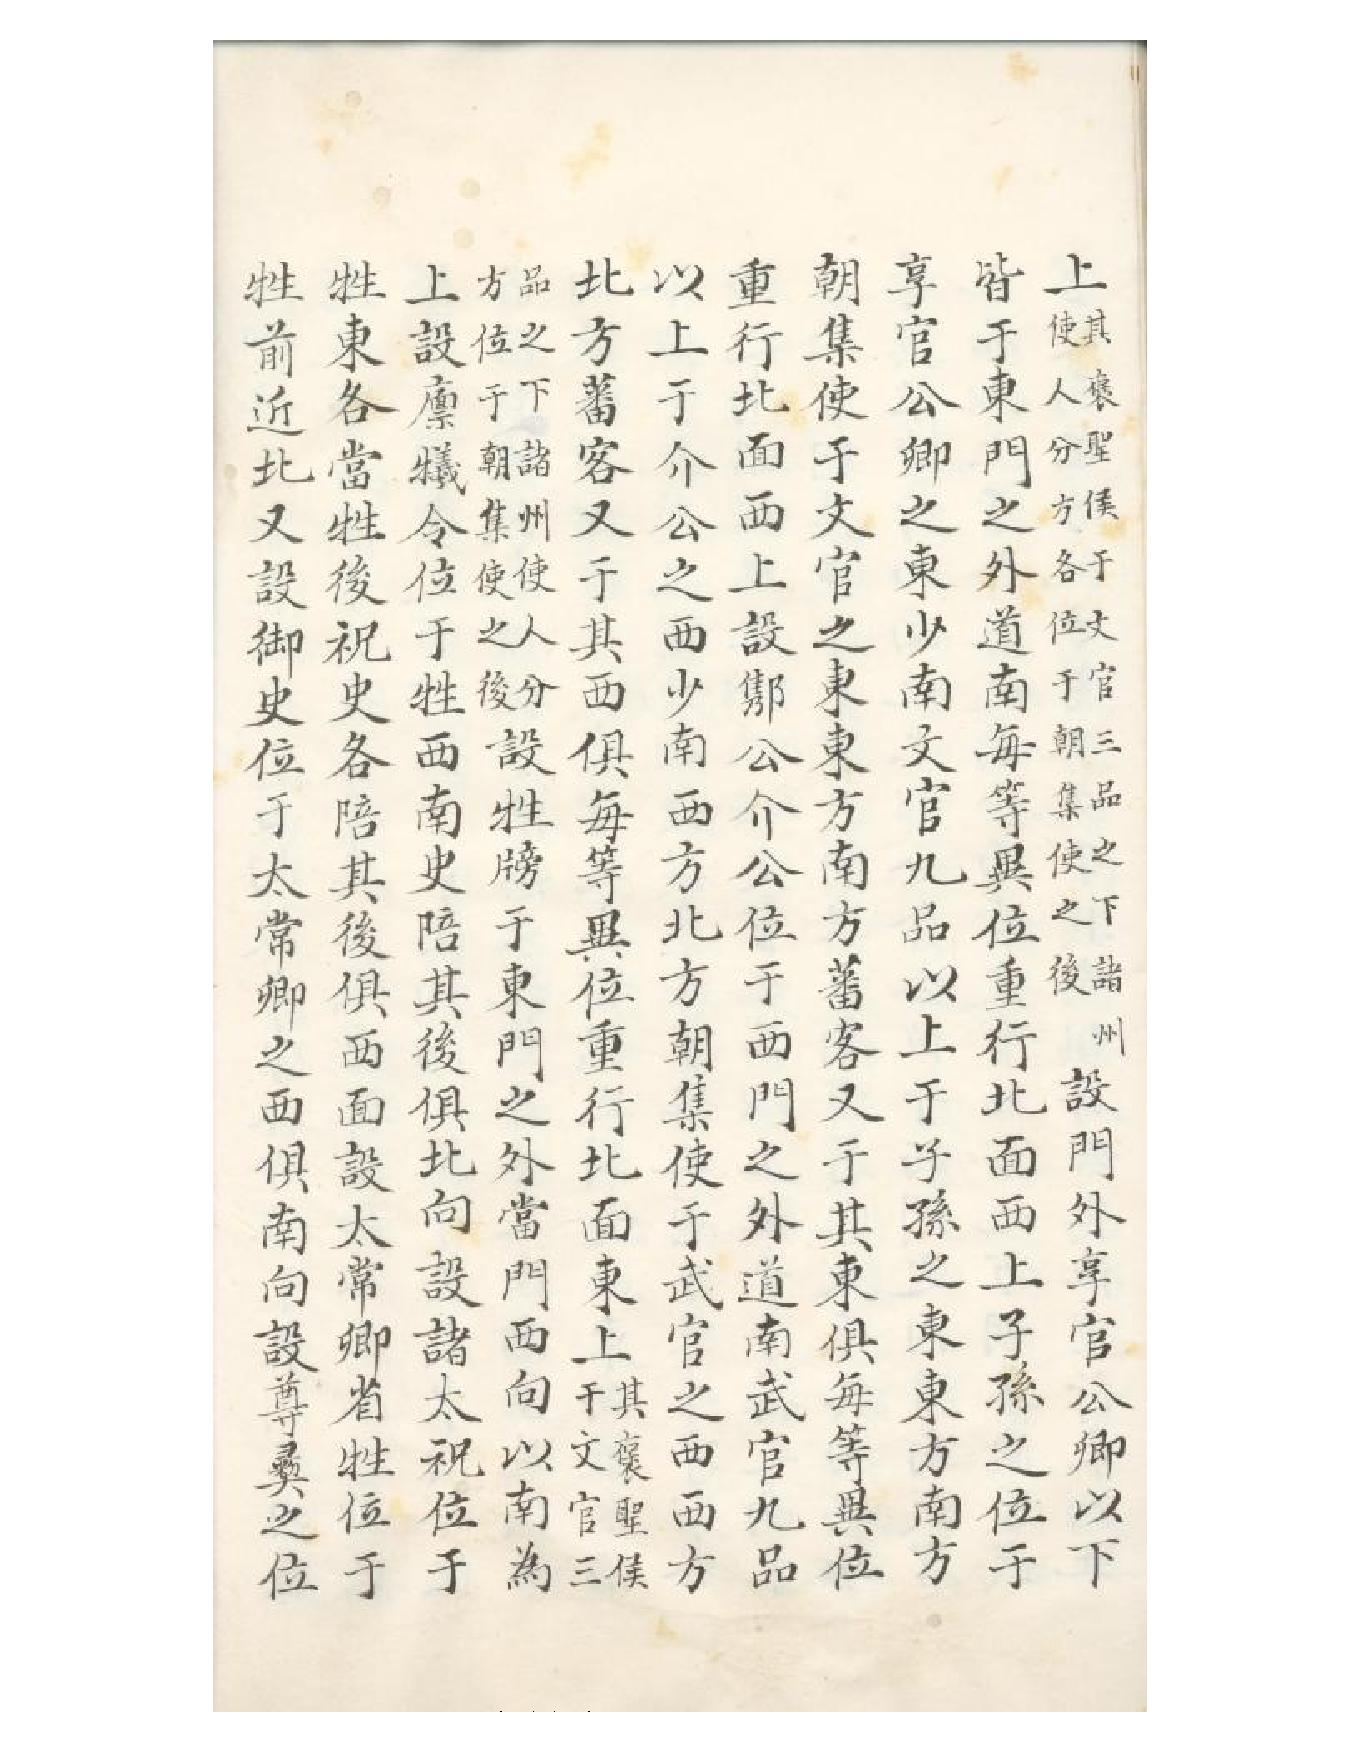 上其褒聖侯于文官三品之下諸州使人分方各位于朝集使之後設門外享官公卿以下
皆于東門之外道南每等異位重行北面西上子孫之位于
享官公卿之東少南文官九品以上于子孫之東東方南方
朝集使于文官之東東方南方蕃客又于其東俱每等異位
重行北面西上設酅公介公位于西門之外道南武官九品
以上于介公之西少南西方北方朝集使于武官之西西方
北方蕃客又于其西俱每等異位重行北面東上其褒聖侯于文官三
品之下諸州使人分方位于朝集使之後設牲牓于東門之外當門西向以南為
上設廪犧令位于牲西南史陪其後俱北向設諸太祝位于
牲東各當牲後祝史各陪其後俱西面設太常卿省牲位于
牲前近北又設御史位于太常卿之西俱南向設尊彝之位